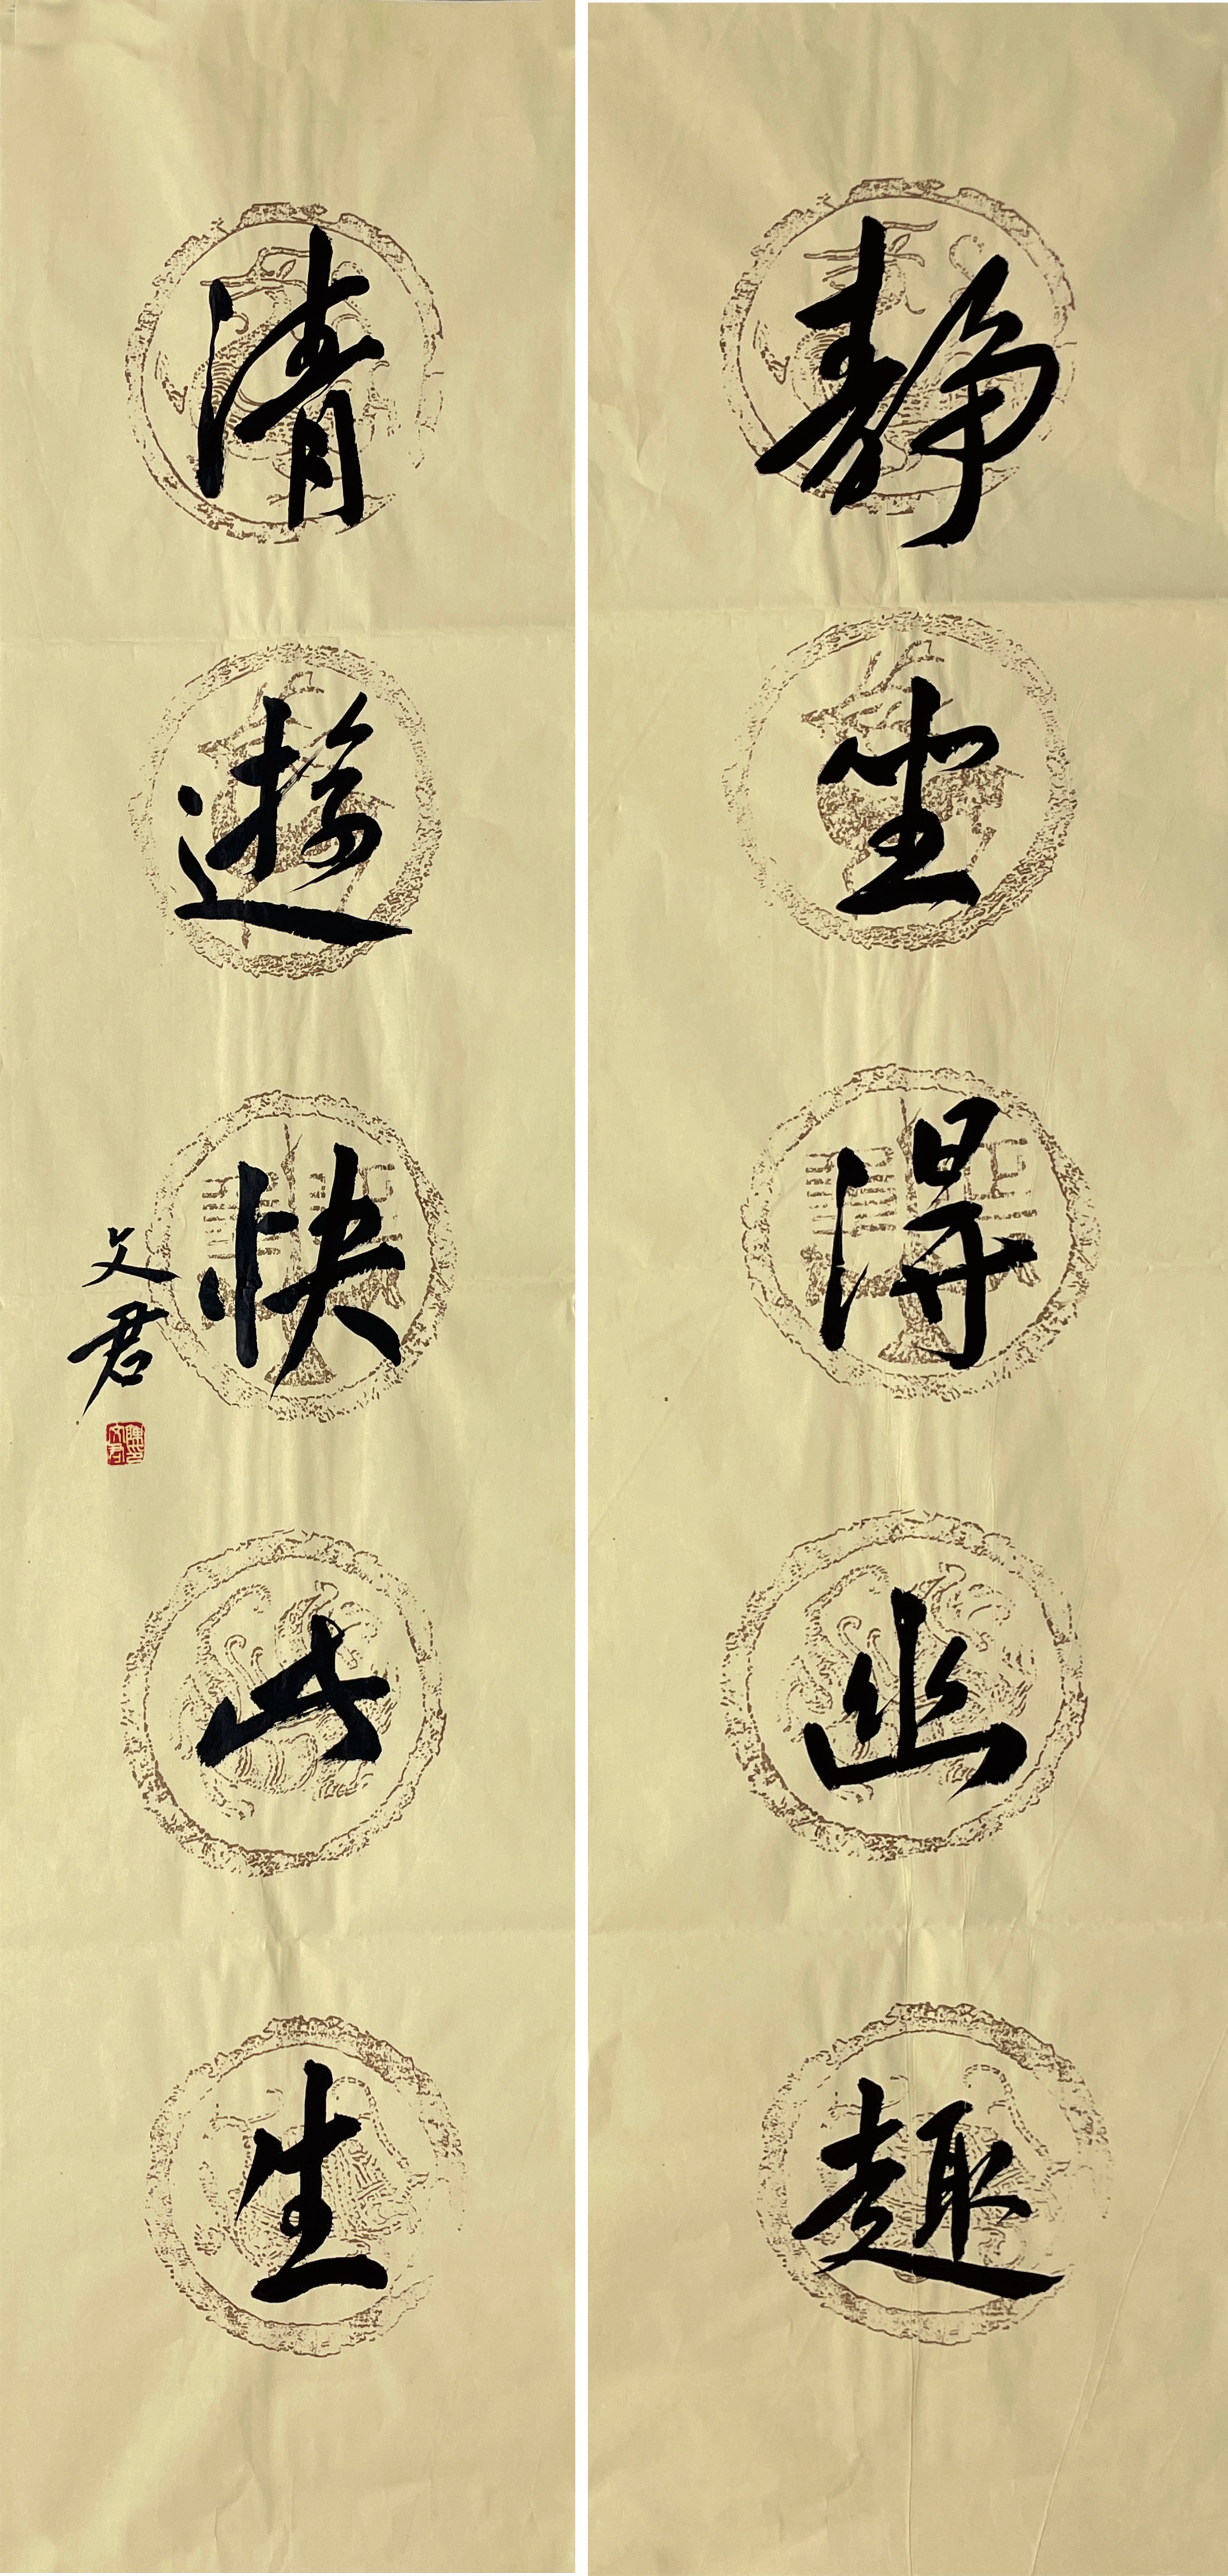 静坐得幽趣
清遊快此生
文君